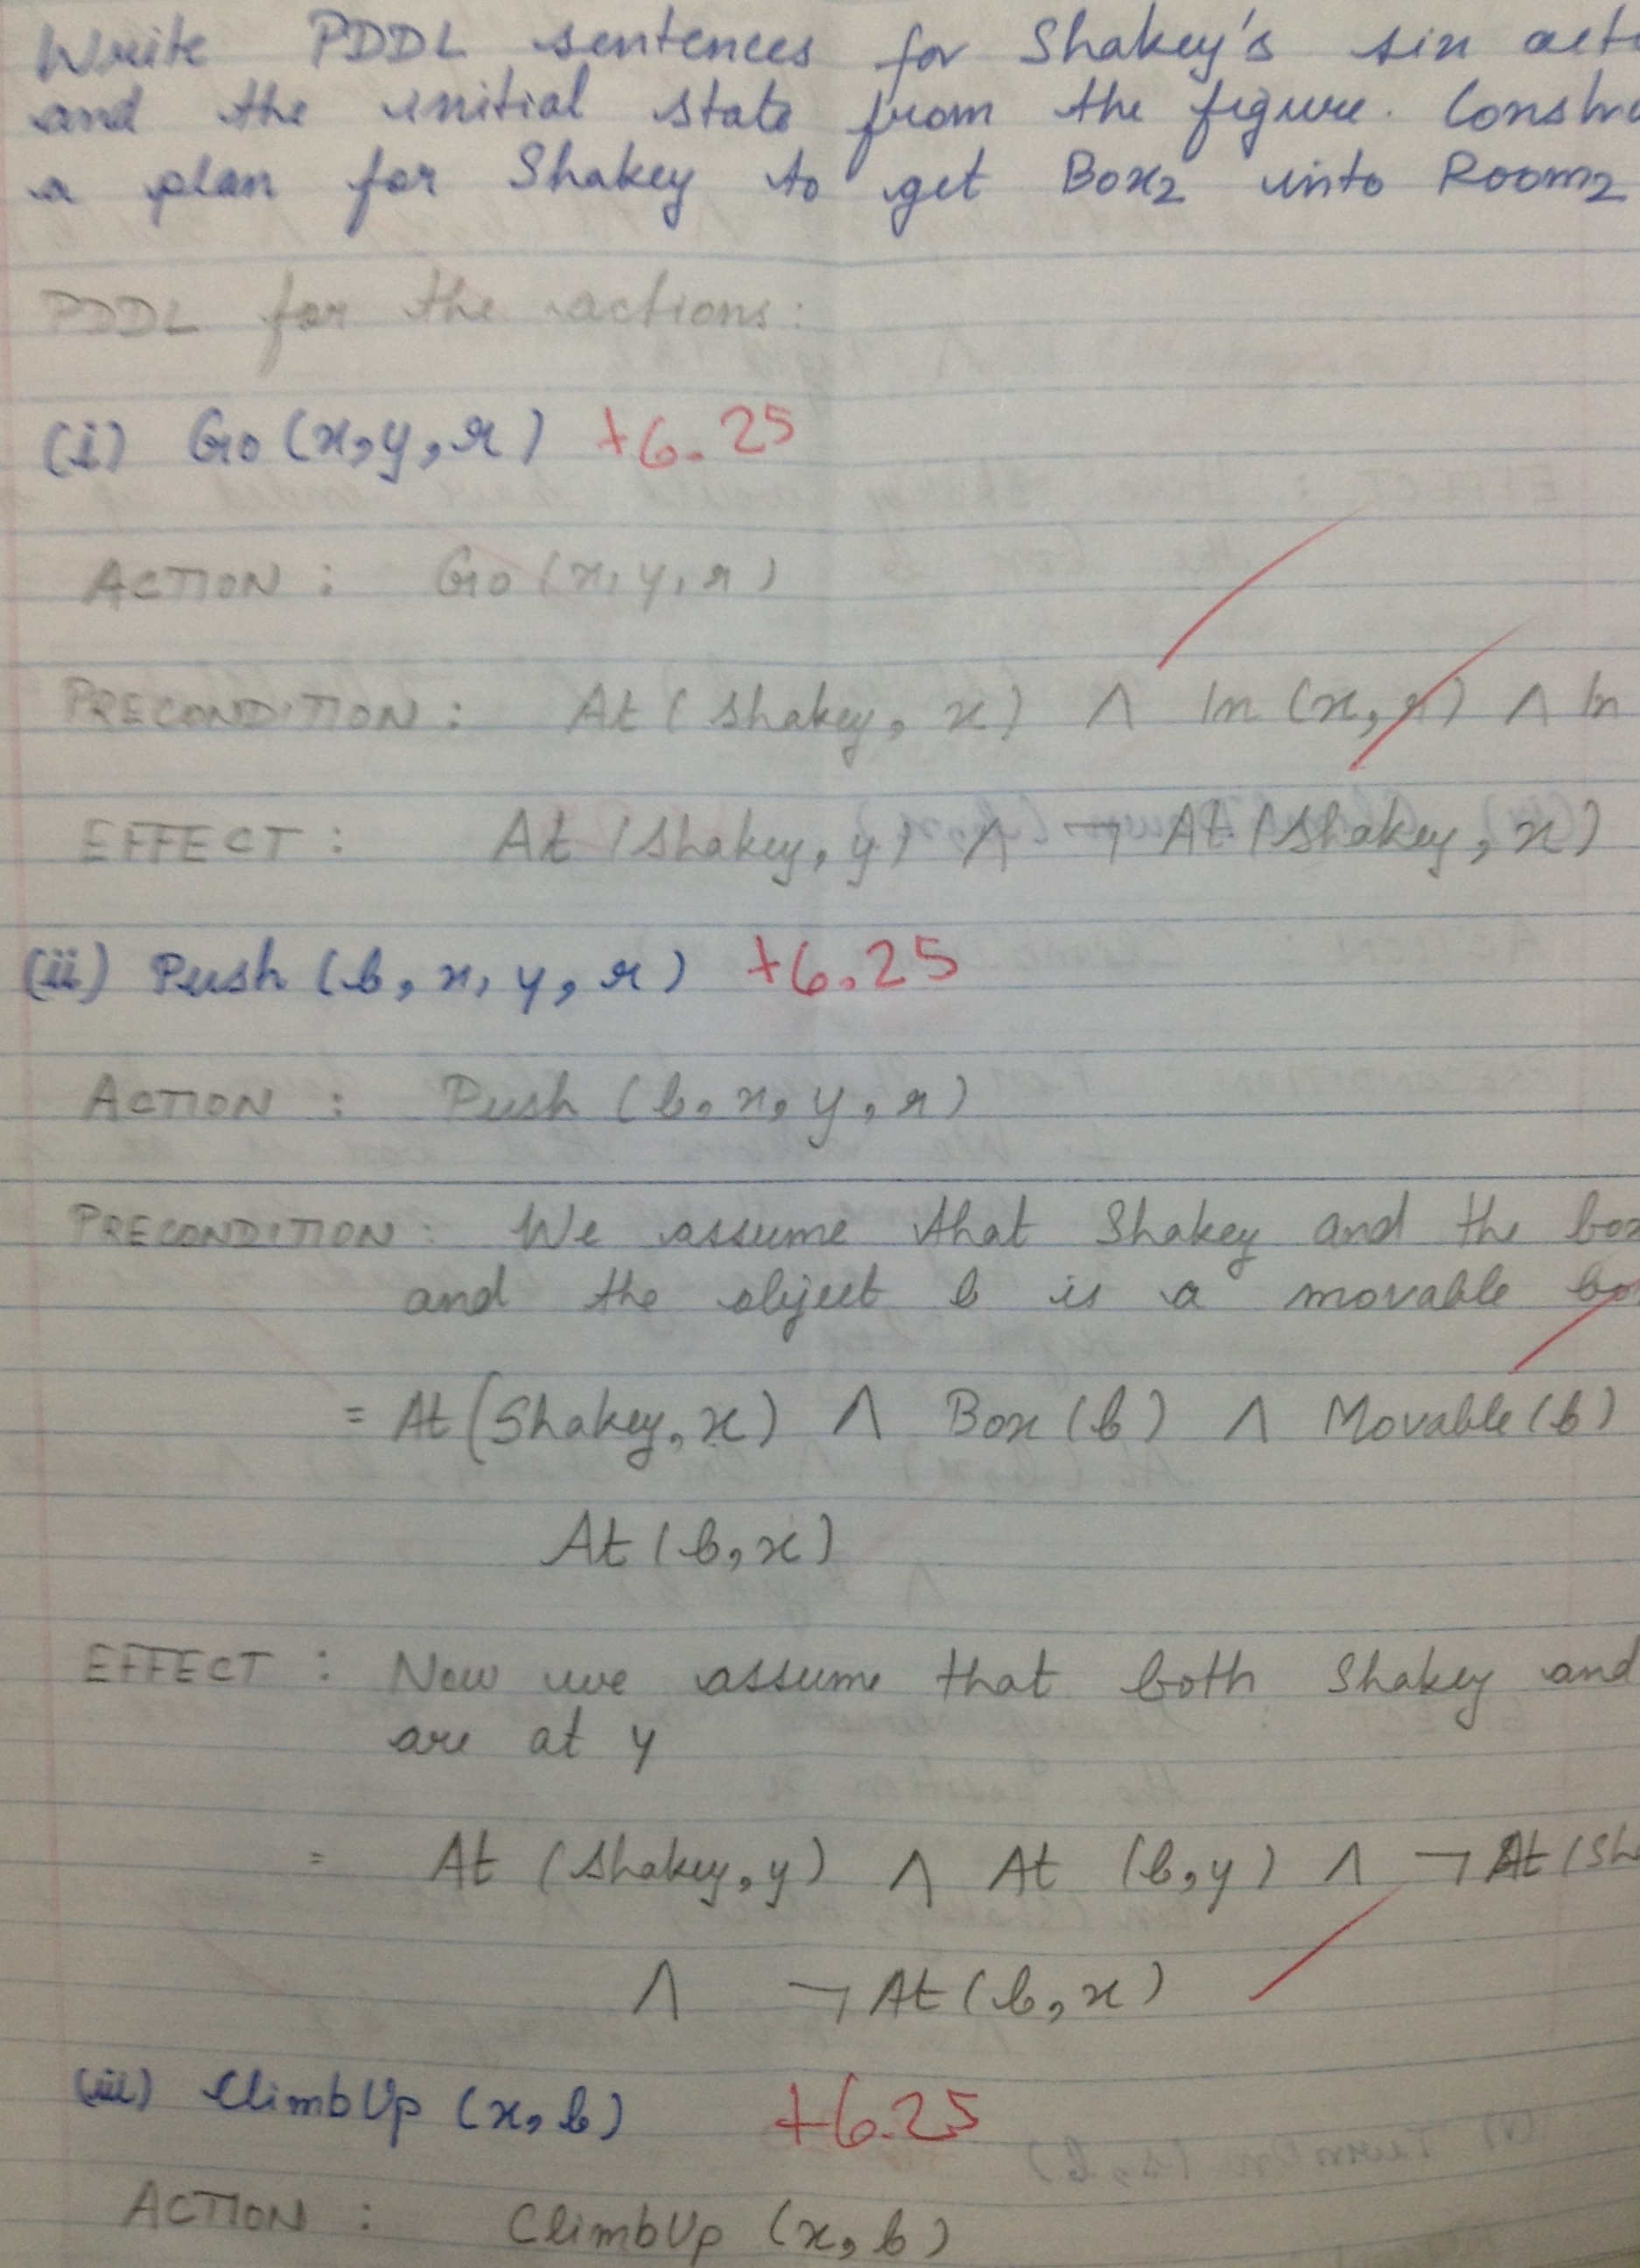 Write PDDL sentences for Shakey's six
and the initial state from the figure.
a plan for Shakey to get Box2 into Room2
PDDL for the actions:
(i) Go (x, y, r) +6.25
ACTION : Go (x, y, r)
PRECONDITION : At ( Shakey, x) ∧ In (x, r) ∧ In
EFFECT : At (Shakey, y) ∧ ¬ At (Shakey, x)
(ii) Push (b, x, y, r) +6.25
ACTION : Push (b, x, y, r)
PRECONDITION : We assume that Shakey and the
and the object b is a movable
= At (Shakey, x) ∧ Box (b) ∧ Movable (b)
At (b, x)
EFFECT : Now we assume that both Shakey and
are at y
= At (Shakey, y) ∧ At (b, y) ∧ ¬ At (Sh
∧ ¬ At (b, x)
(iii) ClimbUp (x, b) +6.25
ACTION : ClimbUp (x, b)